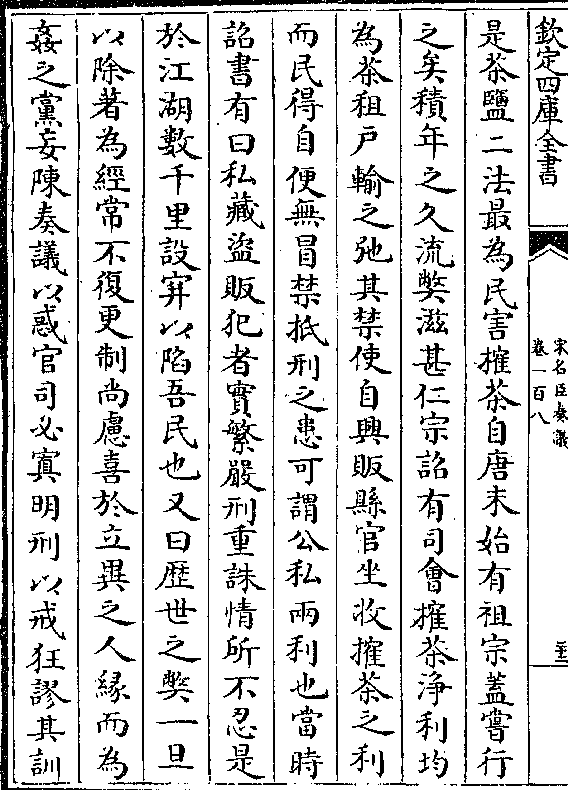 欽定四庫全書
宋名臣奏議
卷一百八
是茶鹽二法最為民害搉茶自唐末始有祖宗蓋嘗行
之矣積年之久流弊滋甚仁宗詔有司會搉茶浄利均
為茶租戸輸之弛其禁使自興販縣官坐收搉茶之利
而民得自便無冒禁抵刑之患可謂公私兩利也當時
詔書有曰私藏盗販犯者實繁嚴刑重誅情所不忍是
於江湖數千里設穽以陷吾民也又曰歴世之弊一旦
以除著為經常不復更制尚慮喜於立異之人緣而為
姦之黨妄陳奏議以惑官司必寘明刑以戒狂謬其訓